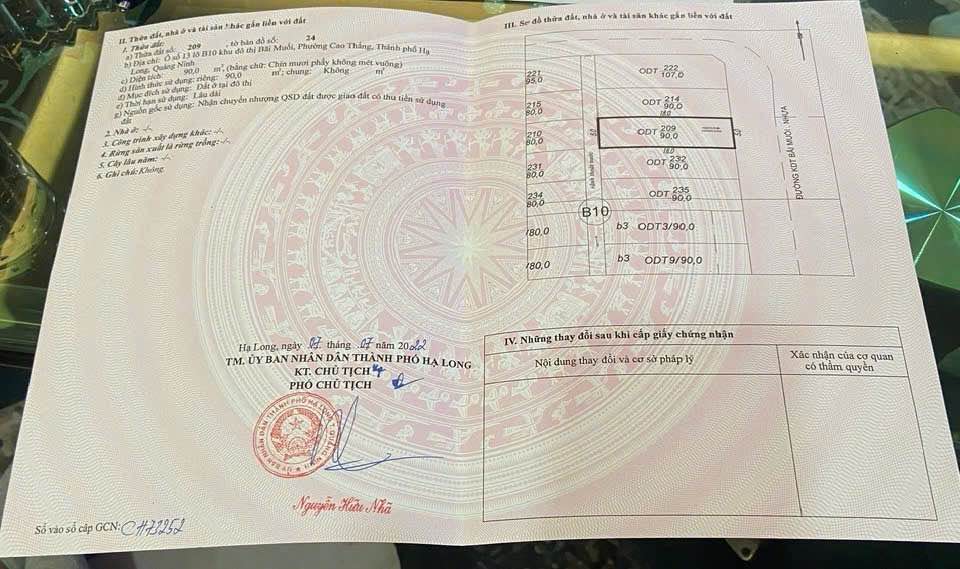 II. Thửa đất, nhà ở và tài sản khác gắn liền với đất
1. Thửa đất:
a) Thửa đất số: 209 , tờ bản đồ số: 24
b) Địa chỉ: Ô số 13 lô B10 khu đô thị Bãi Muối, Phường Cao Thắng, Thành phố Hạ
Long, Quảng Ninh
c) Diện tích: 90,0 m², (bằng chữ: Chín mươi phẩy không mét vuông)
d) Hình thức sử dụng: riêng: 90,0 m²; chung: Không m²
đ) Mục đích sử dụng: Đất ở tại đô thị
e) Thời hạn sử dụng: Lâu dài
g) Nguồn gốc sử dụng: Nhận chuyển nhượng QSD đất được giao đất có thu tiền sử dụng
đất
2. Nhà ở: -/-
3. Công trình xây dựng khác: -/-
4. Rừng sản xuất là rừng trồng: -/-
5. Cây lâu năm: -/-
6. Ghi chú: Không.
Hạ Long, ngày 07 tháng 07 năm 2022
TM. ỦY BAN NHÂN DÂN THÀNH PHỐ HẠ LONG
KT. CHỦ TỊCH
PHÓ CHỦ TỊCH
Nguyễn Hữu Nhã
Số vào sổ cấp GCN: CH73252
III. Sơ đồ thửa đất, nhà ở và tài sản khác gắn liền với đất
221
95,0
ODT 222
107,0
215
80,0
ODT 214
90,0
18,0
210
80,0
ODT 209
90,0
5,0
5,0
18,0
231
80,0
ODT 232
90,0
234
80,0
ODT 235
90,0
B10
/80,0
b3 ODT3/90,0
/80,0
b3 ODT9/90,0
ĐƯỜNG KĐT BÃI MUỐI - NHỰA
IV. Những thay đổi sau khi cấp giấy chứng nhận
Nội dung thay đổi và cơ sở pháp lý
Xác nhận của cơ quan
có thẩm quyền